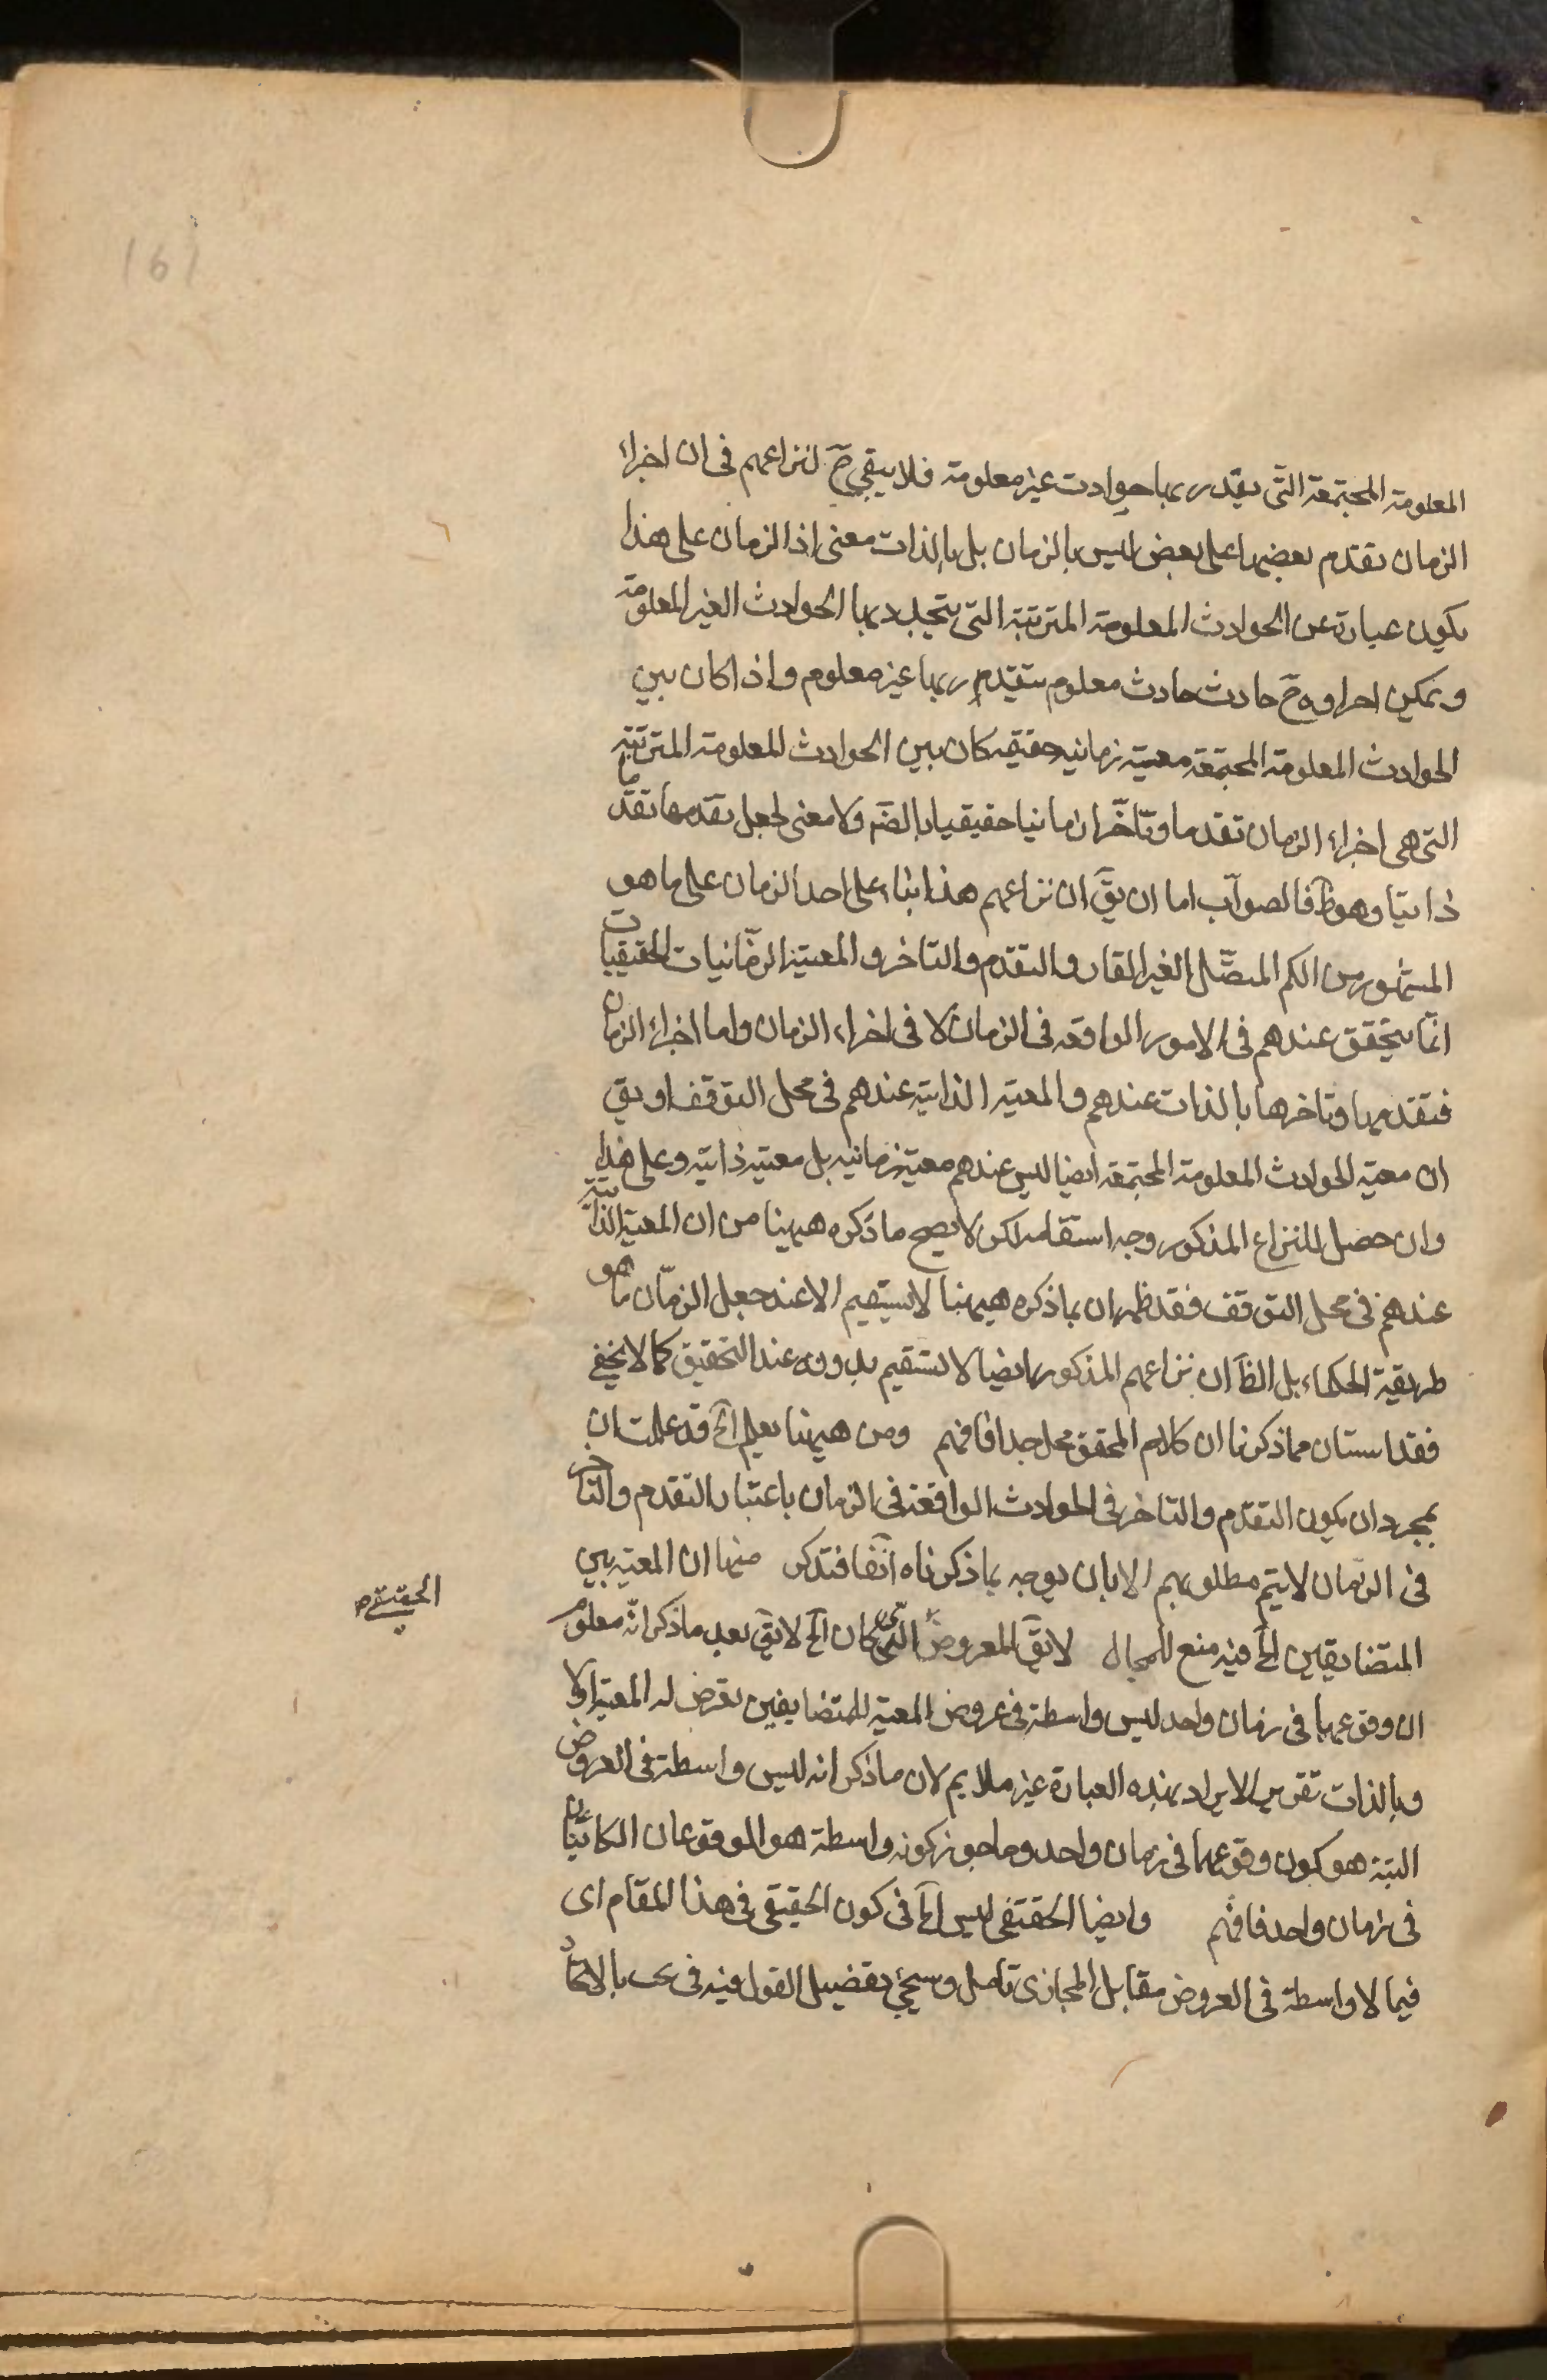 161
المعلومة المجتمعة التى يقدر بها حوادث غير معلومة فلا يبقى ح لنزاعهم فى ان اجزاء
الزمان تقدم بعضها على بعض ليس بالزمان بل بالذات معنى اذ الزمان على هذا
يكون عبارة عن الحوادث المعلومة المترتبة التى يتجدد بها الحوادث الغير المعلومة
و يمكن اجراؤه ح حادث حادث معلوم يتقدر بها غير معلوم واذا كان بين
الحوادث المعلومة المجتمعة معية زمانية حقيقة كان بين الحوادث المعلومة المترتبة
التى هى اجزاء الزمان تقدما وتأخرا زمانيا حقيقيا بالضه ولا معنى لجعل تقدمها تقدما
ذاتيا وهو ظ فالصواب اما ان يق ان نزاعهم هذا بناء على احد الزمان على ما هو
المشهور من الكم المتصل الغير القار والتقدم والتاخر والمعية الزمانيات الحقيقيات
انما يتحقق عندهم فى الامور الواقعه فى الزمان لا فى اجزاء الزمان واما اجزاء الزمان
فتقدمها وتاخرها بالذات عندهم والمعية الذاتية عندهم فى محل التوقف او يق
ان معية الحوادث المعلومة المجتمعة ايضا ليس عندهم معية زمانيه بل معية ذاتية وعلى هذا
وان حصل للنزاع المذكور وجه استقامه لكن لا يصح ما ذكره ههنا من ان المعية الذاتية
عندهم فى محل التوقف فقد ظهر ان ما ذكره ههنا لا يستقيم الا عند جعل الزمان ما هو
طريقة الحكماء بل الظ ان نزاعهم المذكور ايضا لا يستقيم بدونه عند التحقيق كما لا يخفى
فقد استبان مما ذكرنا ان كلام المحقق محل جدا فافهم ومن ههنا يعلم الخ قد علمت ان
بمجرد ان يكون التقدم والتاخر فى الحوادث الواقعة فى الزمان باعتبار التقدم والتاخر
فى الزمان لا يتم مطلوبهم الا بان يوجه بما ذكرناه آنفا فتذكر منها ان المعية بين
المتضايفين الخ فيه منع للمجال لا يق المعروض التى كان الخ لا يق بعد ما ذكر انه معلوم
ان وقوعهما فى زمان واحد ليس واسطة فى عروض المعية للمتضايفين تعرض له المعية اولا
وبالذات تقرير الايراد بهذه العبارة غير ملايم لان ما ذكر انه ليس واسطة فى العروض
البتة هو كون وقوعهما فى زمان واحد وما جوز كونه واسطة هو الموقوعان الكائنان
فى زمان واحد فافهم وايضا الحقيقى ليس الخ فى كون الحقيقى فى هذا المقام اى
فيما لا واسطة فى العروض مقابل المجازى تامل وسيجئ تفضيل القول فيه فى بحث بالاتحاد
الحقيقى